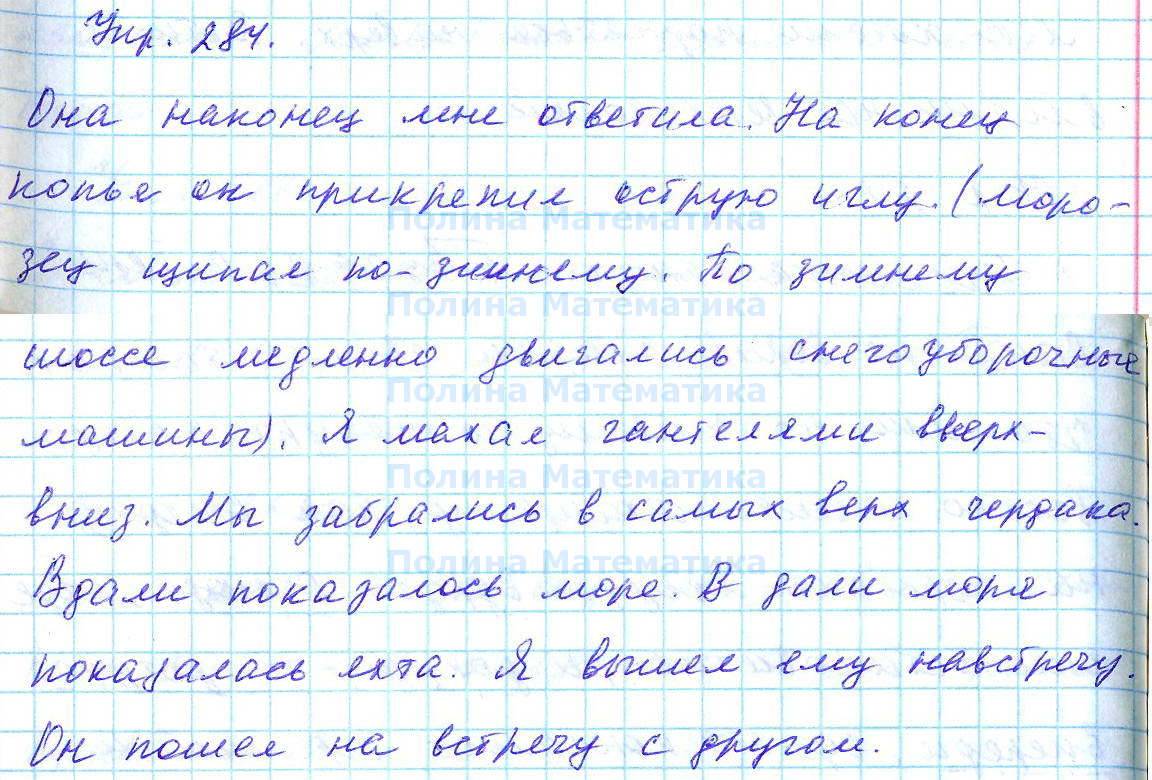 Упр. 284.
Она наконец мне ответила. На конец
копья он прикрепил острую иглу. (Моро-
Полина Математика
зец щипал по-зимнему. По зимнему
Полина Математика
шоссе медленно двигались снегоуборочные
Полина Математика
машины). Я махал гантелями вверх-
Полина Математика
вниз. Мы забрались в самых верх чердака.
Полина Математика
Вдали показалось море. В дали моря
показалась яхта. Я вышел ему навстречу.
Он пошел на встречу с другом.